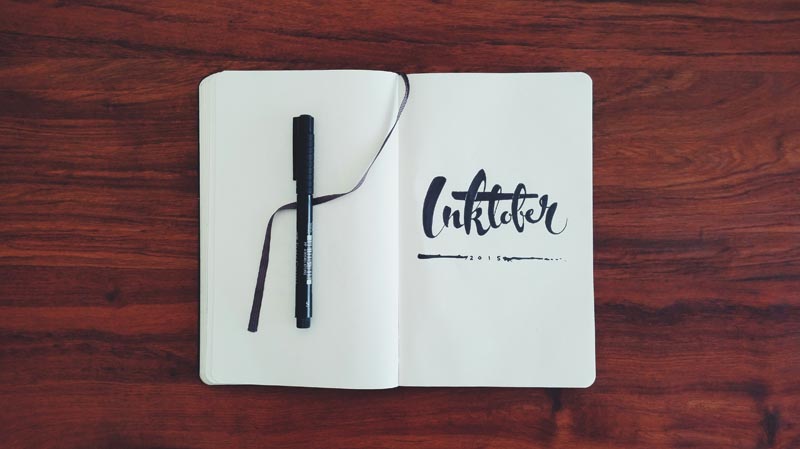 Inktober
2015